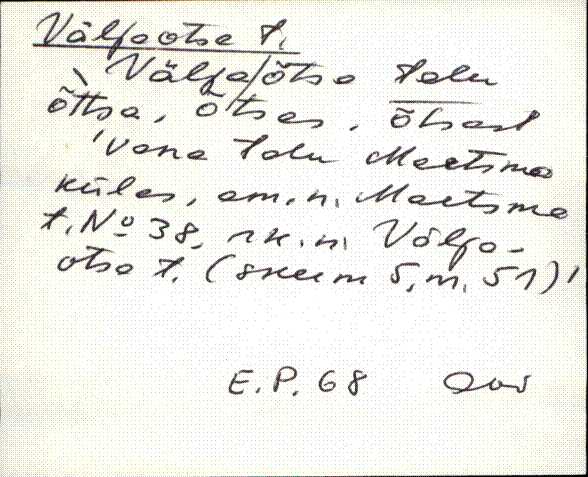 Väljaotsa t.
`Välja/õtsa talu
õttsa, õtsas, õtsast
'vana talu Maetsma
külas, am. n. Maetsma
t. № 38, rk. n. Välja-
otsa t. (skeem 5, m. 51)'
E.P. 68